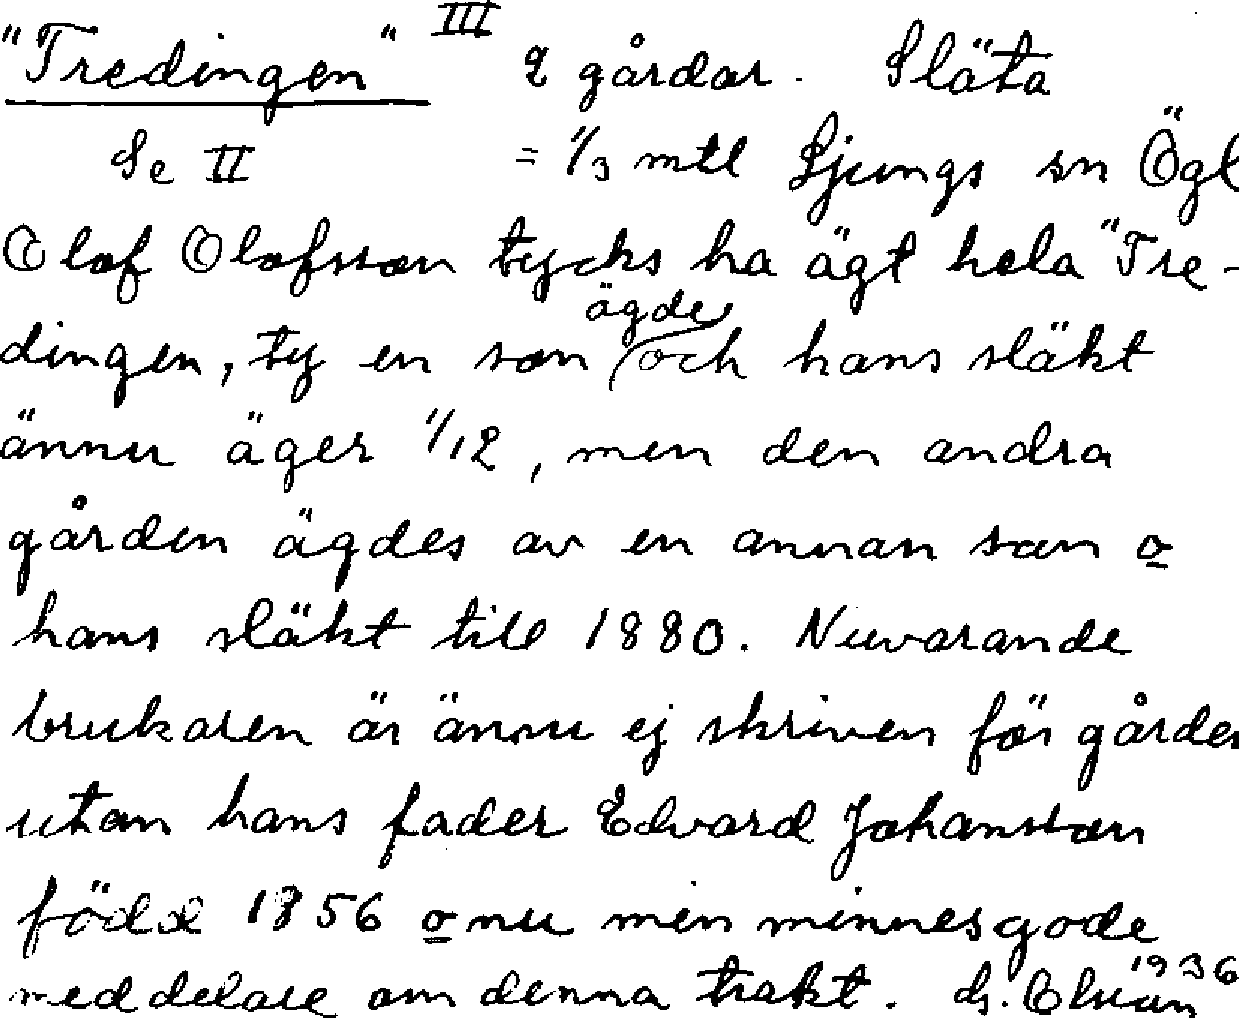 "Tredingen" III 2 gårdar. Släta
Se II = 1/3 mtl Ljungs sn Ögl
Olof Olofsson tycks ha ägt hela "Tre-
dingen, ty en son ägde och hans släkt
ännu äger 1/12, men den andra
gården ägdes av en annan son o
hans släkt till 1880. Nuvarande
brukaren är ännu ej skriven för gården
utan hans fader Edvard Johansson
född 1856 o nu min minnesgode
meddelare om denna trakt. 1936